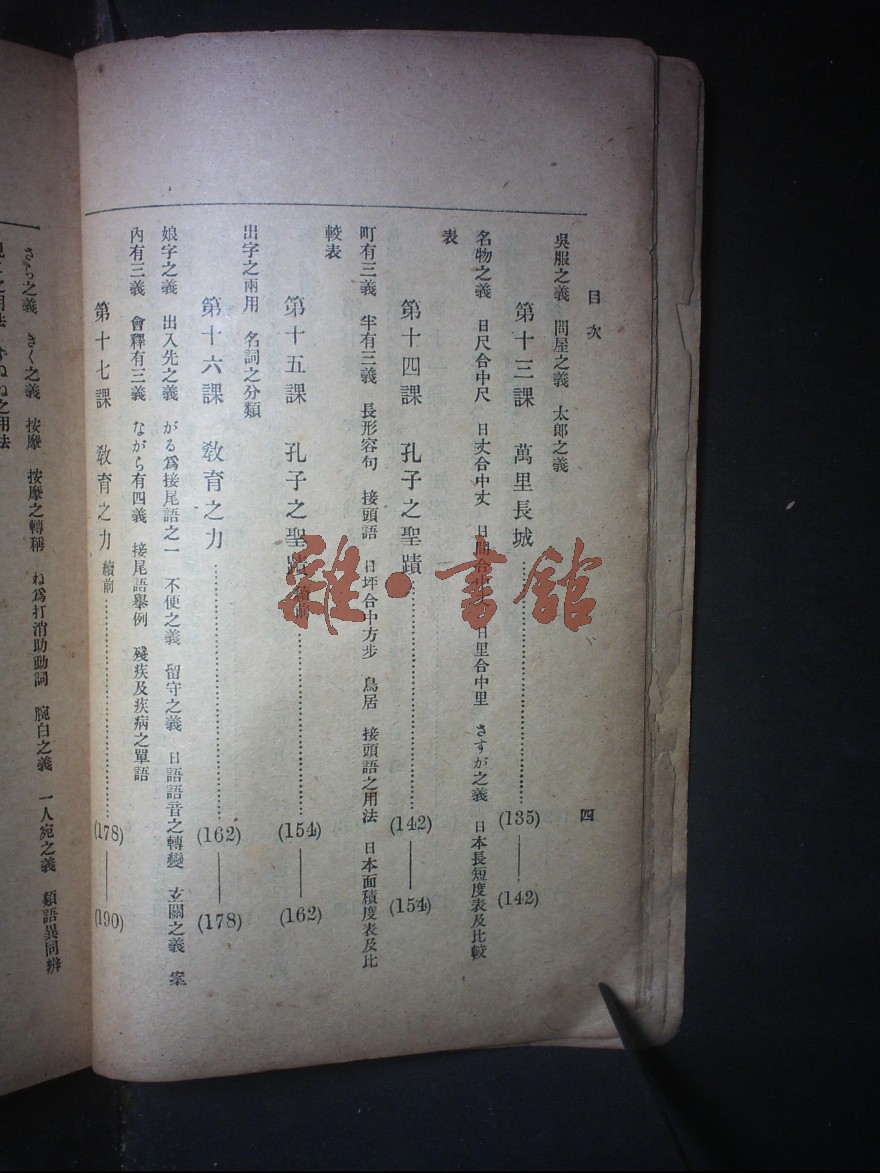 目次
四
吳服之義 問屋之義 太郎之義
第十三課 萬里長城 (135)——(142)
名物之義 日尺合中尺 日丈合中丈 日間合中丈 日里合中里 さすが之義 日本長短度表及比較
表
第十四課 孔子之聖蹟 (142)——(154)
町有三義 半有三義 長形容句 接頭語 日坪合中方步 鳥居 接頭語之用法 日本面積度表及比
較表
第十五課 孔子之聖蹟 續前 (154)——(162)
出字之兩用 名詞之分類
第十六課 敎育之力 (162)——(178)
娘字之義 出入先之義 がる爲接尾語之一 不便之義 留守之義 日語語音之轉變 玄關之義 案
內有三義 會釋有三義 ながら有四義 接尾語擧例 殘疾及疾病之單語
第十七課 敎育之力 續前 (178)——(190)
さら之義 きく之義 按摩 按摩之轉稱 ね爲打消助動詞 腕白之義 一人宛之義 類語異同辨
之用法
雜·書館